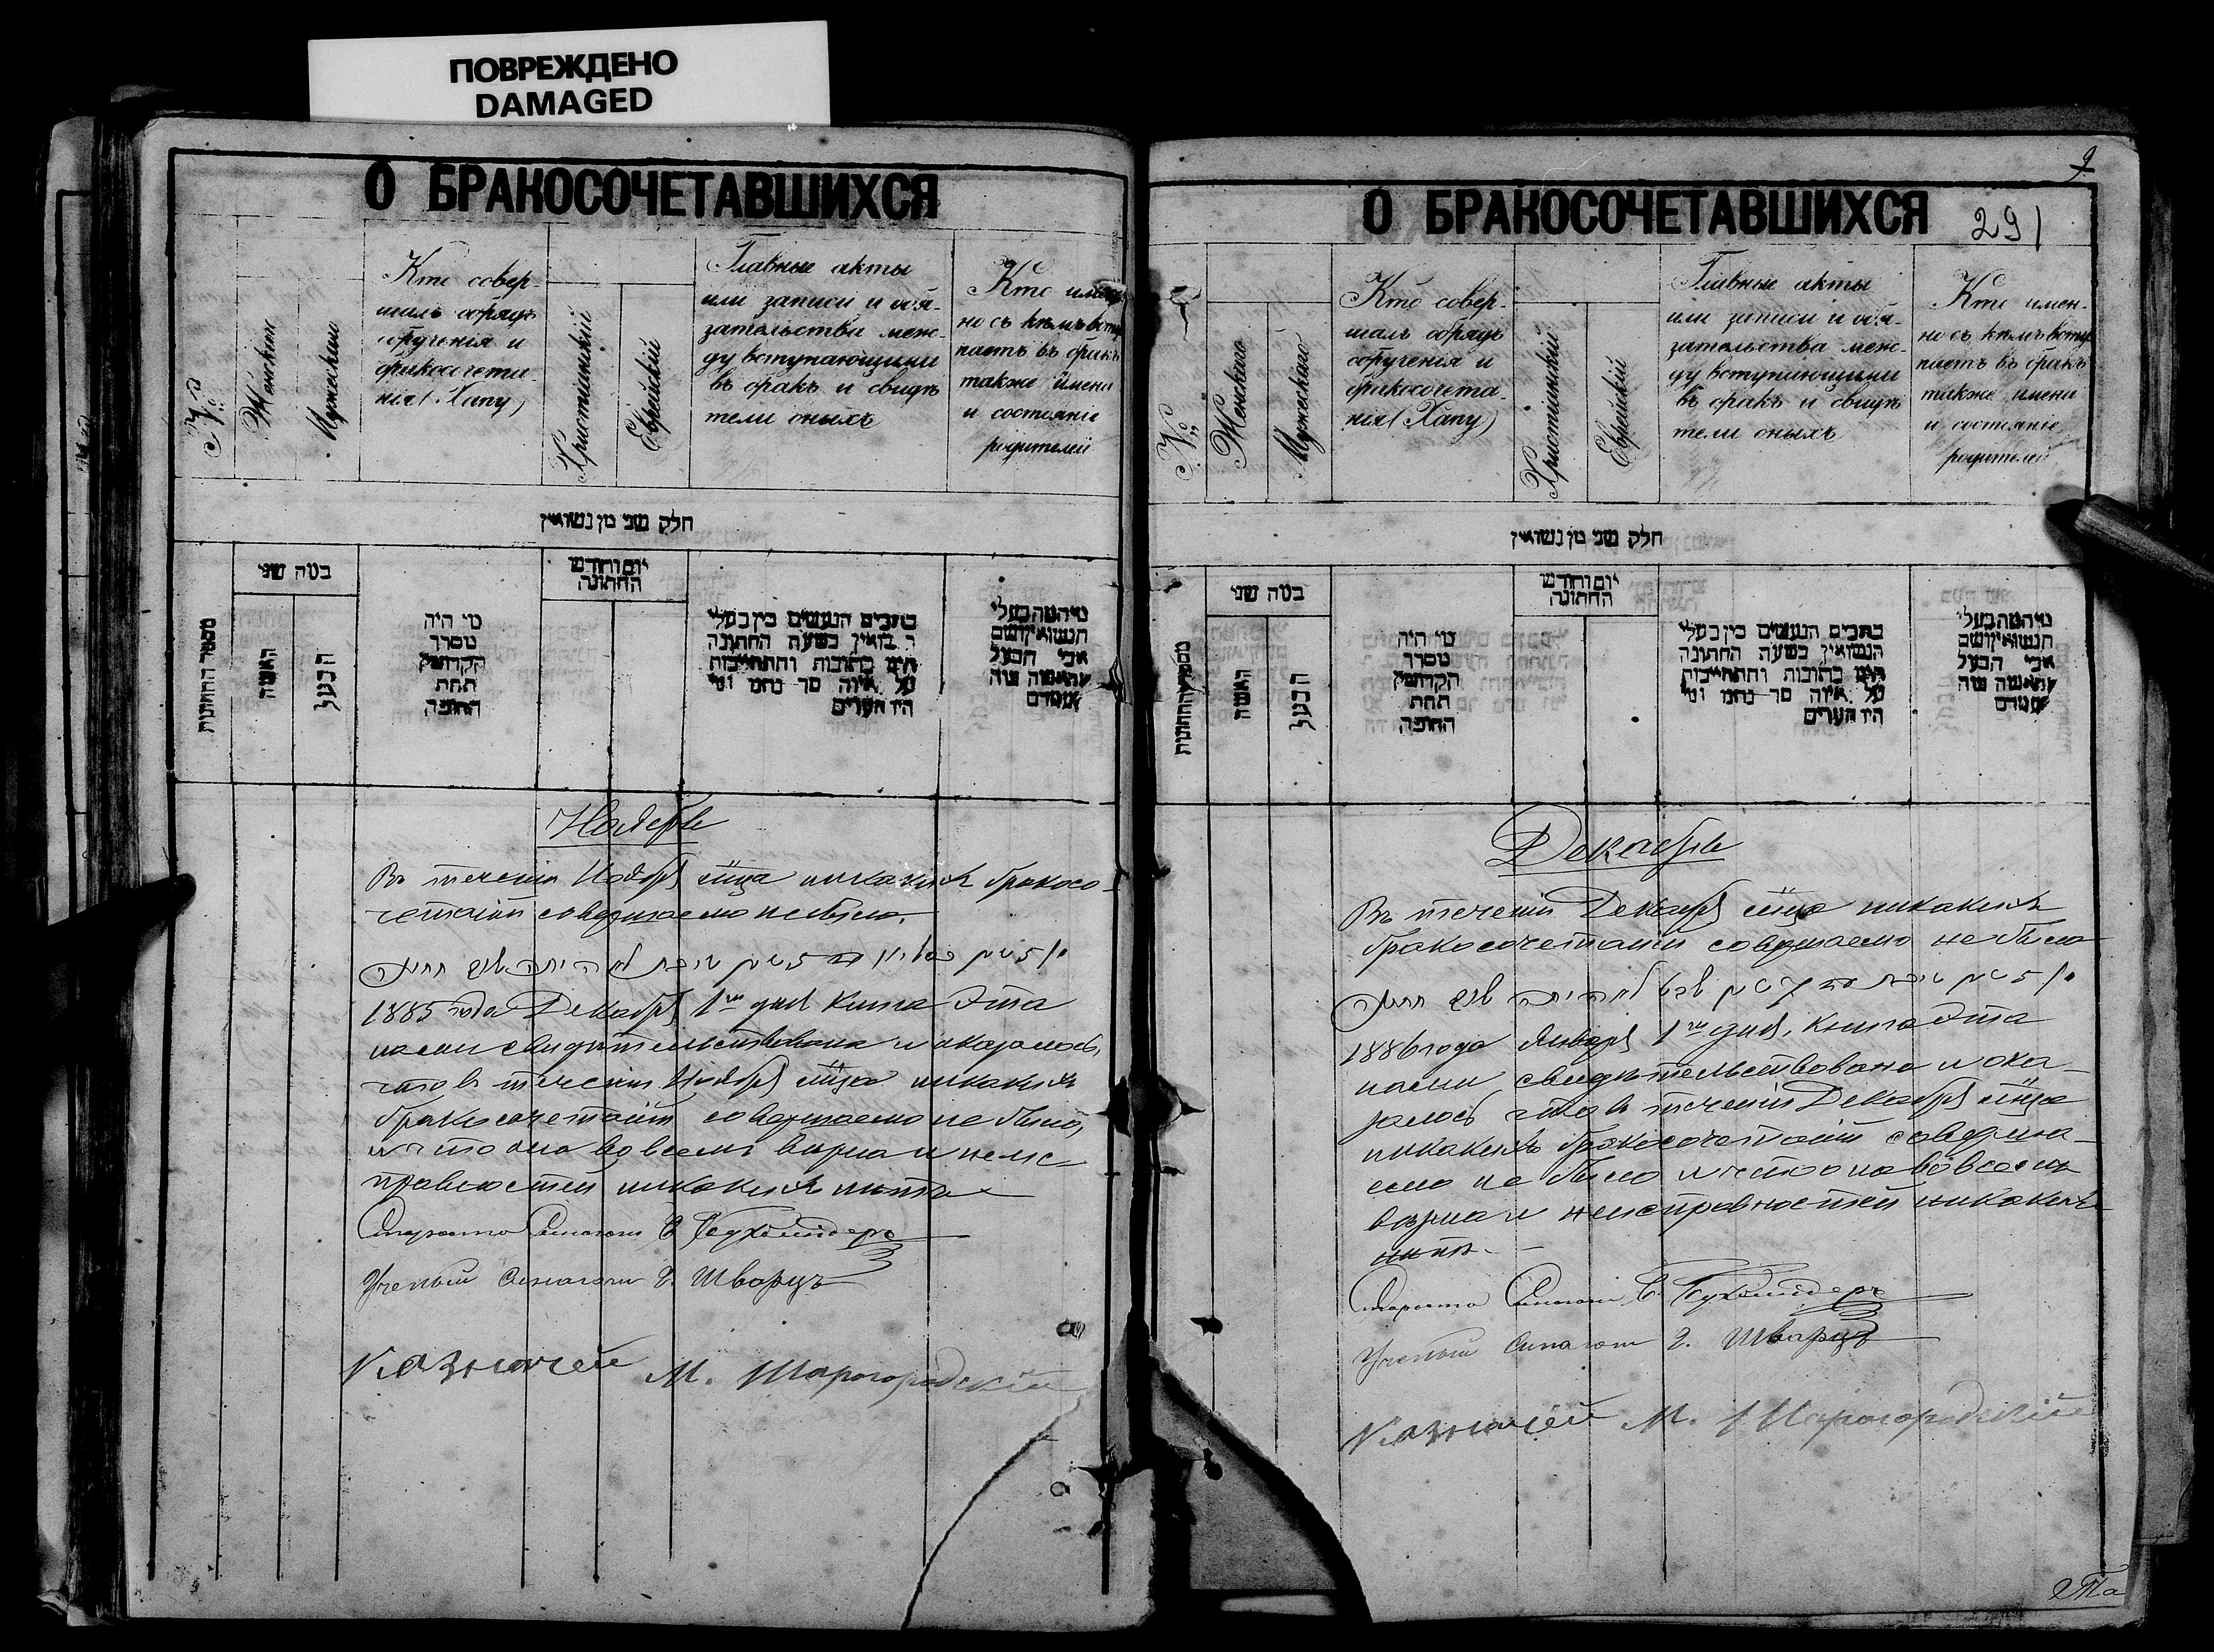 ПОВРЕЖДЕНО
DAMAGED
О БРАКОСОЧЕТАВШИХСЯ
№
Женскаго
Мужескаго
Кто совер-
шалъ обрядъ
обрученія и
бракосочета-
нія (Хапу)
Христіянскій
Еврейскій
Главные акты
или записи и обя-
зательства меж-
ду вступающими
въ бракъ и свидѣ
тели оныхъ
Кто имен
но съ кѣмъ всту
паетъ въ бракъ
также имена
и состояніе
родителей
חלק שני מן נשואין
מספר החתונות
כמה שני
האשה
הבעל
מי היה
מסדר
הקדושין
תחת
החופה
יום וחודש
החתונה
כתבים הנעשים בין בעלי
הנשואין בשעת החתונה
היינו כתובות והתחייבות
על איזה סך נתנו ומי
היו העדים
מי המה בעלי
הנשואין ושם
אבי הבעל
והאשה ומה
מעמדם
Ноябрь
Въ теченіи Ноября мѣца никакихъ бракосо-
четаній совершаемо не было.
1885 года Декабря 1го дня книга эта
нами свидѣтельствована и оказалось,
что въ теченіи Ноября мѣца никакихъ
бракосочетаній совершаемо не было,
и что она во всемъ вѣрна и неис-
правностей никакихъ нѣтъ
Староста Синагоги
Ученый Синагоги Г. Шварцъ
Казначей М. Шарогородскій
9
О БРАКОСОЧЕТАВШИХСЯ
291
№
Женскаго
Мужескаго
Кто совер-
шалъ обрядъ
обрученія и
бракосочета-
нія (Хапу)
Христіянскій
Еврейскій
Главные акты
или записи и обя-
зательства меж-
ду вступающими
въ бракъ и свидѣ
тели оныхъ
Кто имен-
но съ кѣмъ всту
паетъ въ бракъ
также имена
и состояніе
родителей
חלק שני מן נשואין
מספר החתונות
כמה שני
האשה
הבעל
מי היה
מסדר
הקדושין
תחת
החופה
יום וחודש
החתונה
כתבים הנעשים בין בעלי
הנשואין בשעת החתונה
היינו כתובות והתחייבות
על איזה סך נתנו ומי
היו העדים
מי המה בעלי
הנשואין ושם
אבי הבעל
והאשה ומה
מעמדם
Декабрь
Въ теченіи Декабря мѣца никакихъ
бракосочетаній совершаемо не было
1886 года Января 1го дня, книга эта
нами свидѣтельствована и ока-
залось что въ теченіи Декабря мѣца
никакихъ бракосочетаній соверша-
емо не было и что она во всемъ
вѣрна и неисправностей никакихъ
нѣтъ.
Староста Синагоги
Ученый Синагоги Г. Шварцъ
Казначей М. Шарогородскій